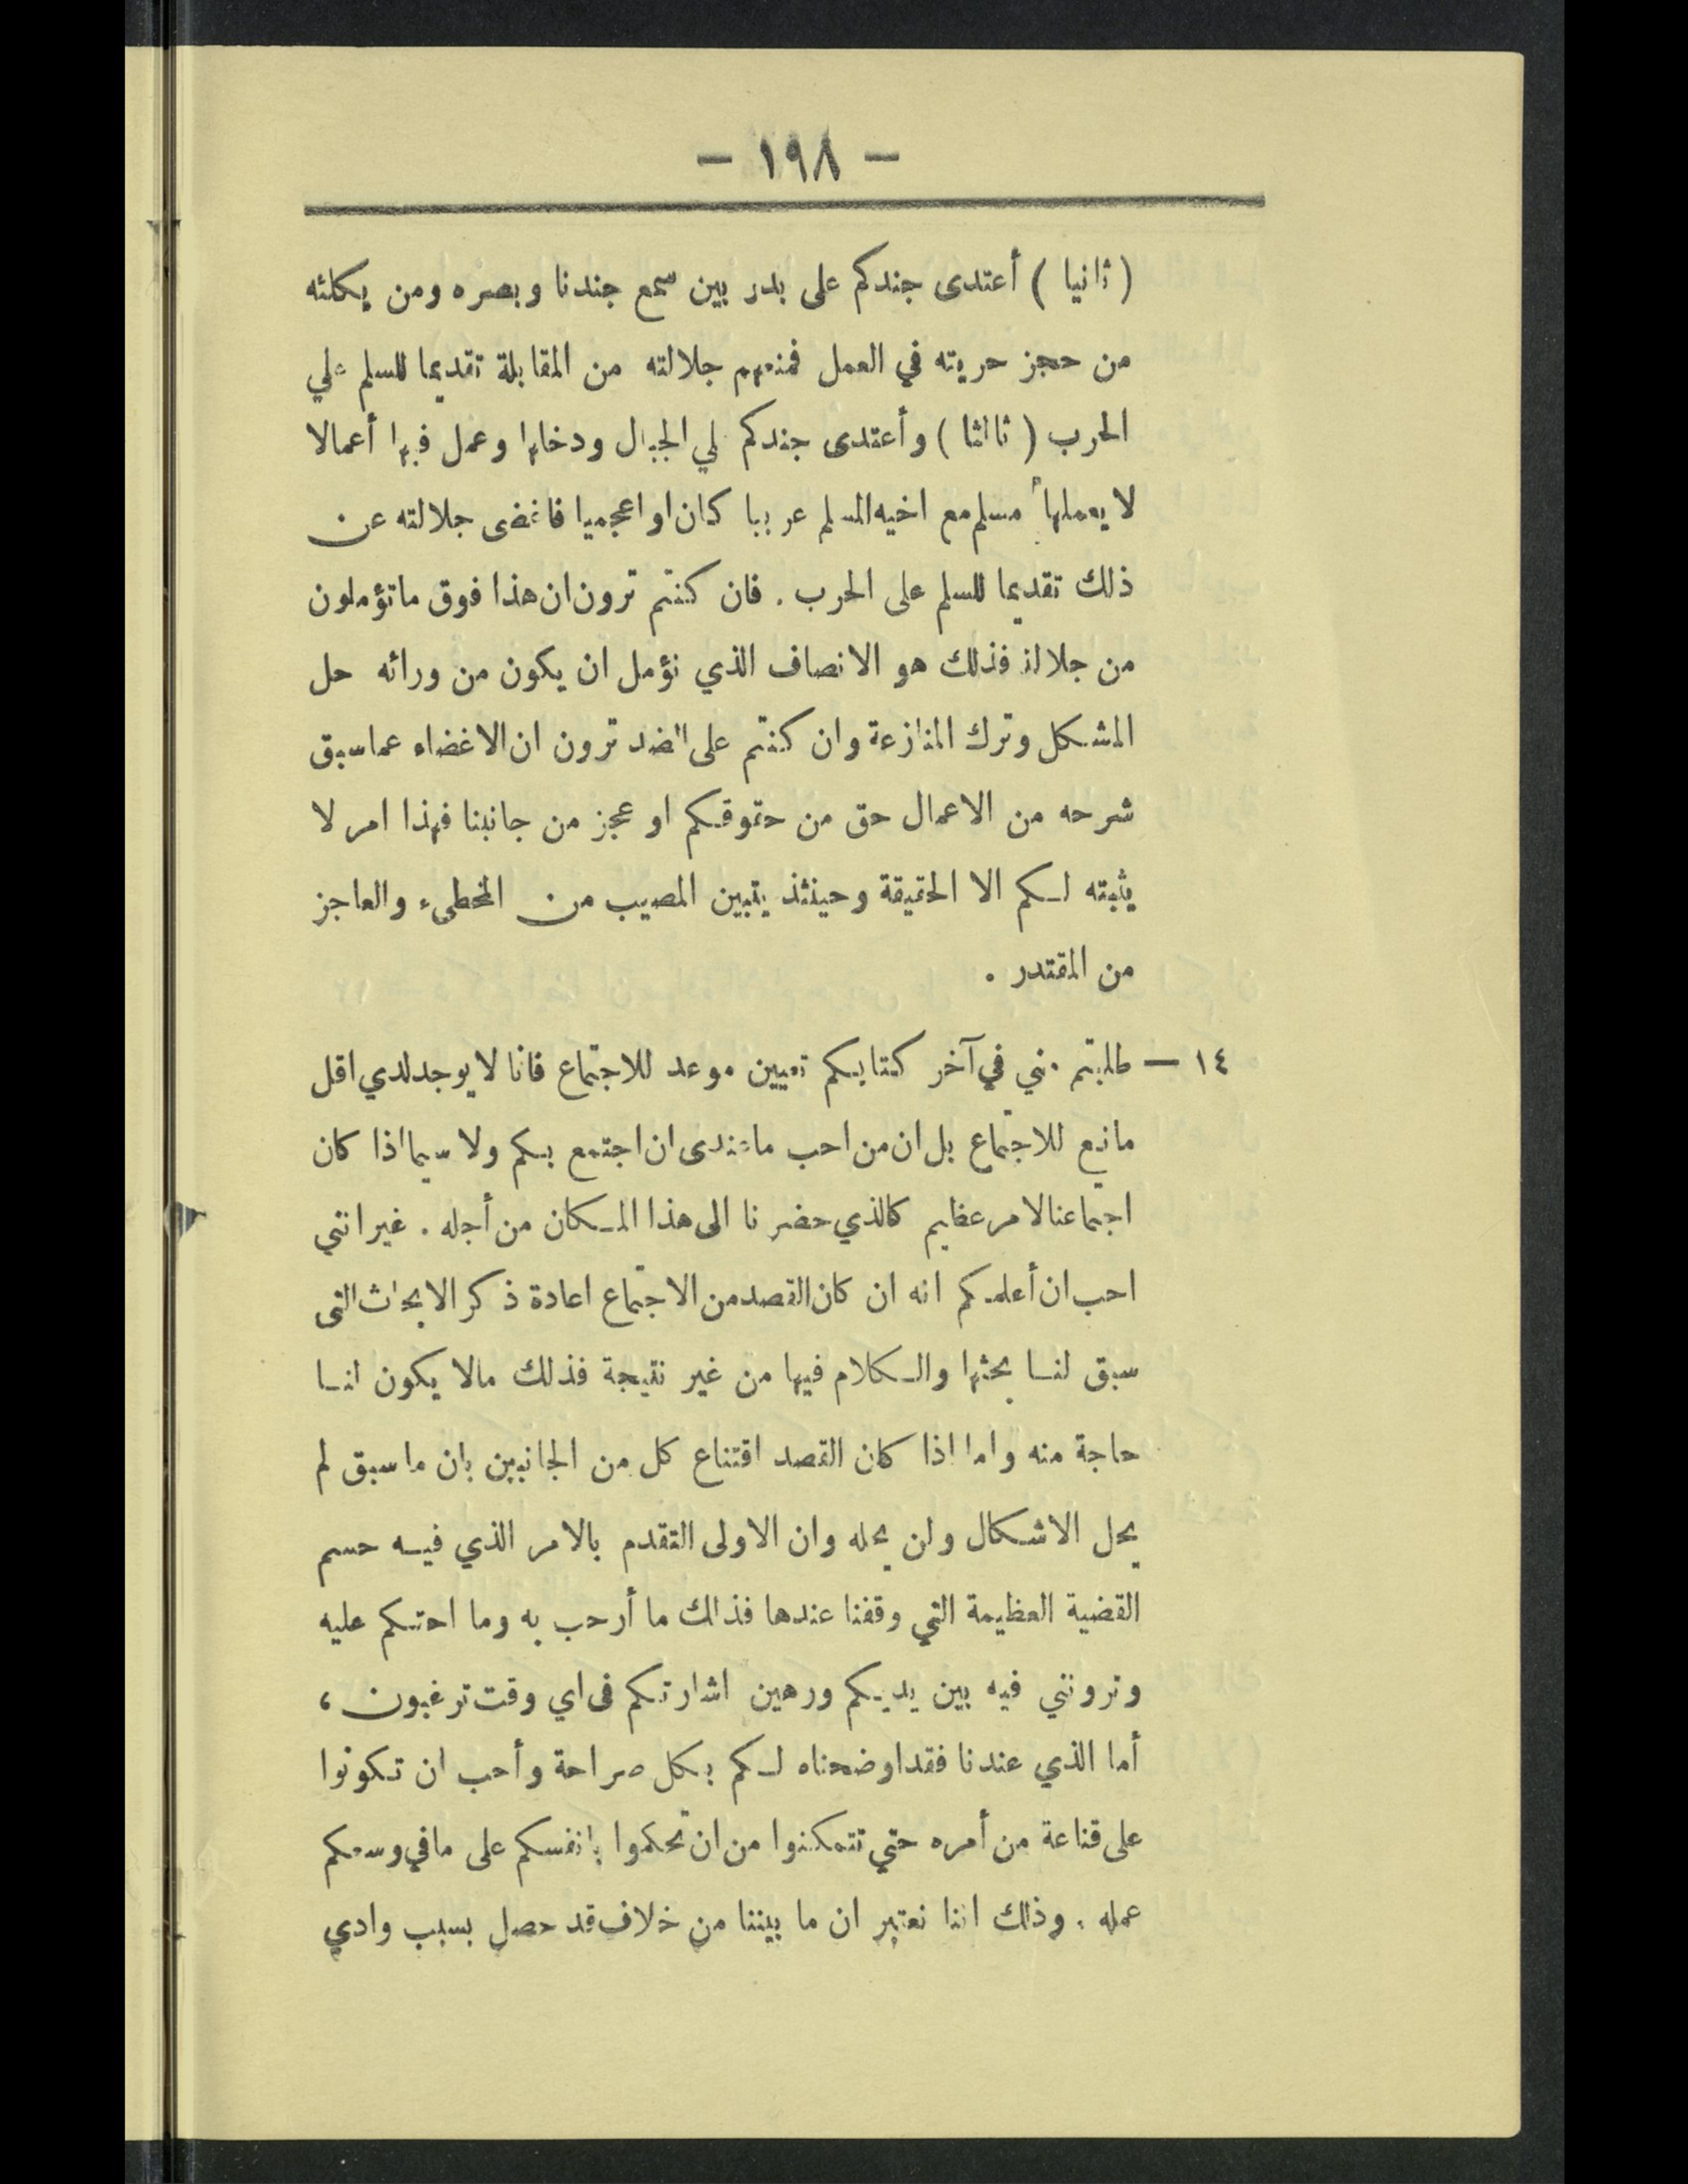 — ١٩٨ —
( ثانيا ) أعتدى جندكم على بدر بين سمع جندنا وبصره ومن يكلئه
من حجز حريته في العمل فمنعهم جلالته من المقابلة تقديما للسلم علي
الحرب ( ثالثا ) وأعتدى جندكم علي الجبال ودخلها وعمل فيها أعمالا
لا يعملها مسلم مع اخيه المسلم عربيا كان او اعجميا فاغضى جلالته عن
ذلك تقديما للسلم على الحرب . فان كنتم ترون ان هذا فوق ماتؤملون
من جلالته فذلك هو الانصاف الذي نؤمل ان يكون من ورائه حل
المشكل وترك المنازعة وان كنتم على الضد ترون ان الاغضاء عما سبق
شرحه من الاعمال حق من حقوقكم او عجز من جانبنا فهذا امر لا
يثبته لكم الا الحقيقة وحينئذ يتبين المصيب من المخطىء والعاجز
من المقتدر .
١٤ — طلبتم مني في آخر كتابكم تعيين موعد للاجتماع فانا لا يوجد لدي اقل
مانع للاجتماع بل ان من احب ماعندى ان اجتمع بكم ولا سيما اذا كان
اجتماعنا لامر عظيم كالذي حضرنا الى هذا المكان من أجله . غير انني
احب ان أعلمكم انه ان كان القصد من الاجتماع اعادة ذكر الابحاث التى
سبق لنا بحثها والكلام فيها من غير نتيجة فذلك مالا يكون لنا
حاجة منه واما اذا كان القصد اقتناع كل من الجانبين بان ما سبق لم
يحل الاشكال ولن يحله وان الاولى التقدم بالامر الذي فيه حسم
القضية العظيمة التي وقفنا عندها فذلك ما أرحب به وما احتكم عليه
وترونني فيه بين يديكم ورهين اشارتكم فى اي وقت ترغبون ،
أما الذي عندنا فقد اوضحناه لكم بكل صراحة وأحب ان تكونوا
على قناعة من أمره حتي تتمكنوا من ان تحكموا بانفسكم على مافي وسعكم
عمله . وذلك اننا نعتبر ان ما بيننا من خلاف قد حصل بسبب وادي